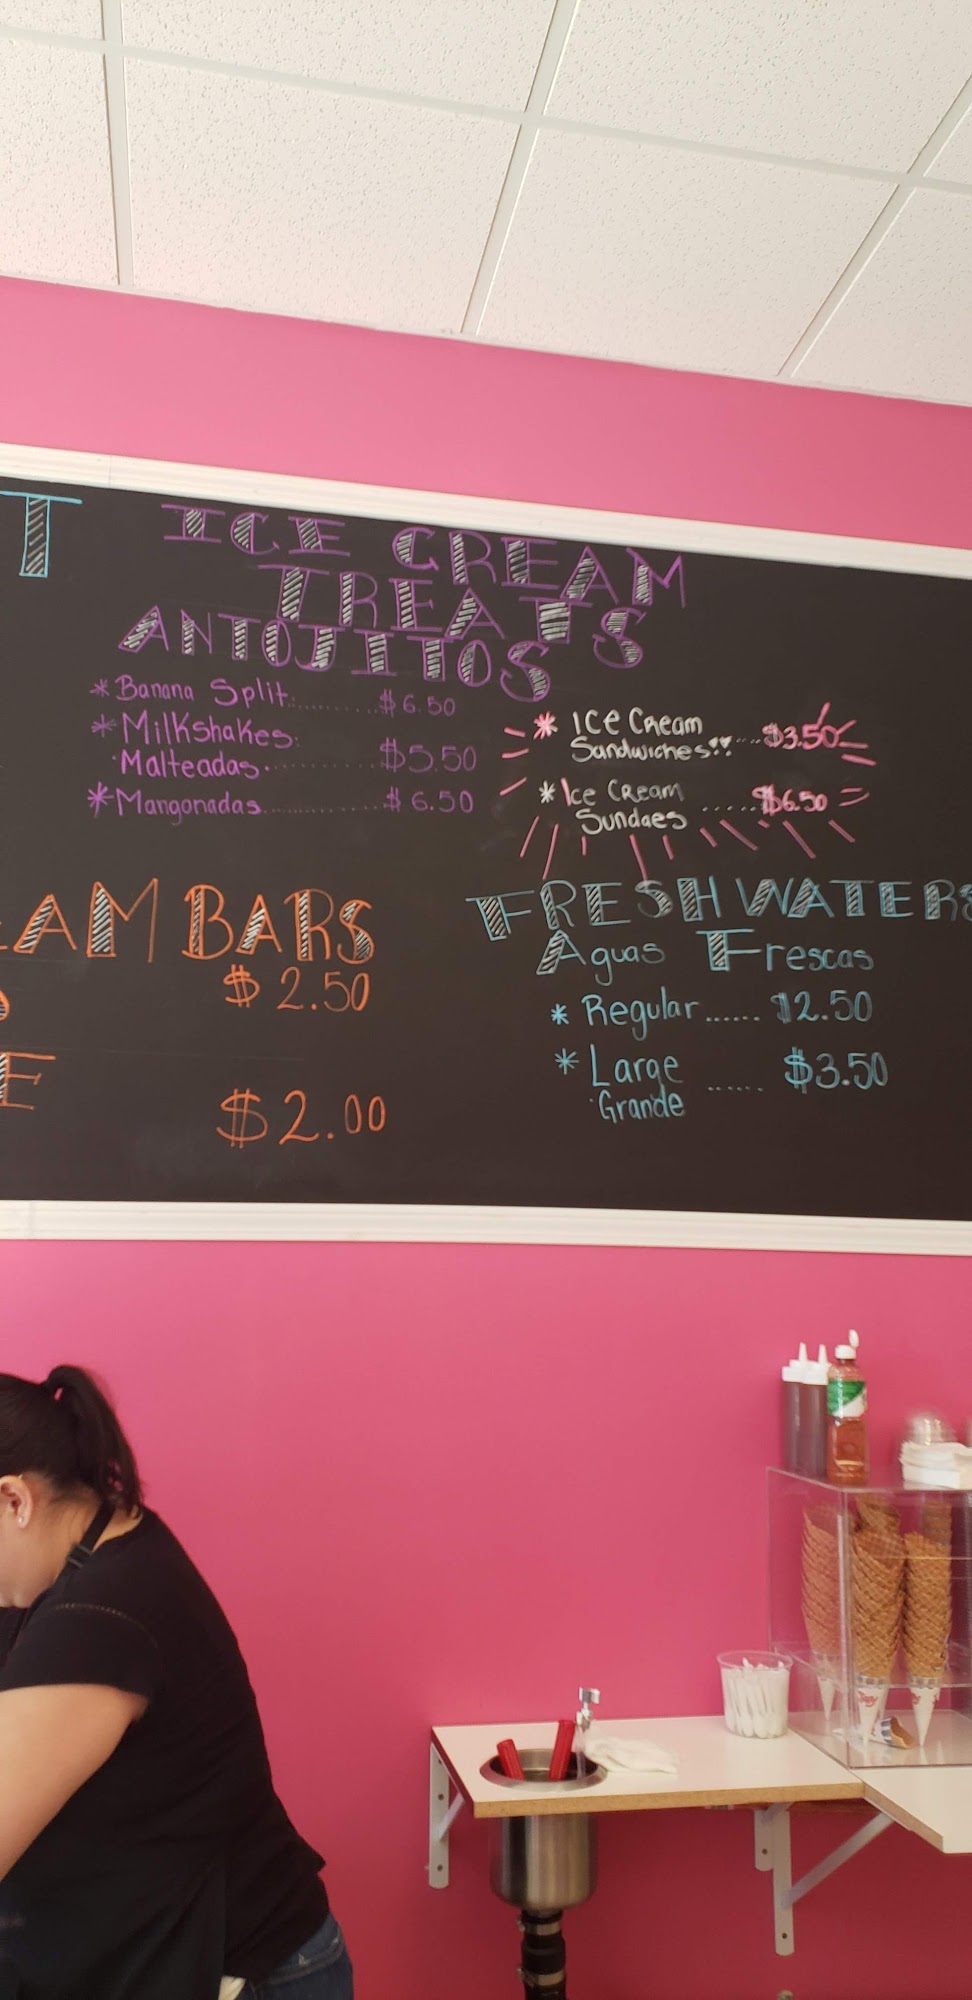 T
ICE CREAM
TREATS
ANTOJITOS
* Banana Split.............$6.50
* Milkshakes
Malteadas..............$5.50
* Mangonadas..............$6.50
* Ice Cream
Sandwiches!!....$3.50
* Ice Cream
Sundaes ......$6.50
AM BARS
$2.50
E
$2.00
FRESH WATERS
Aguas Frescas
* Regular...... $2.50
* Large ...... $3.50
Grande